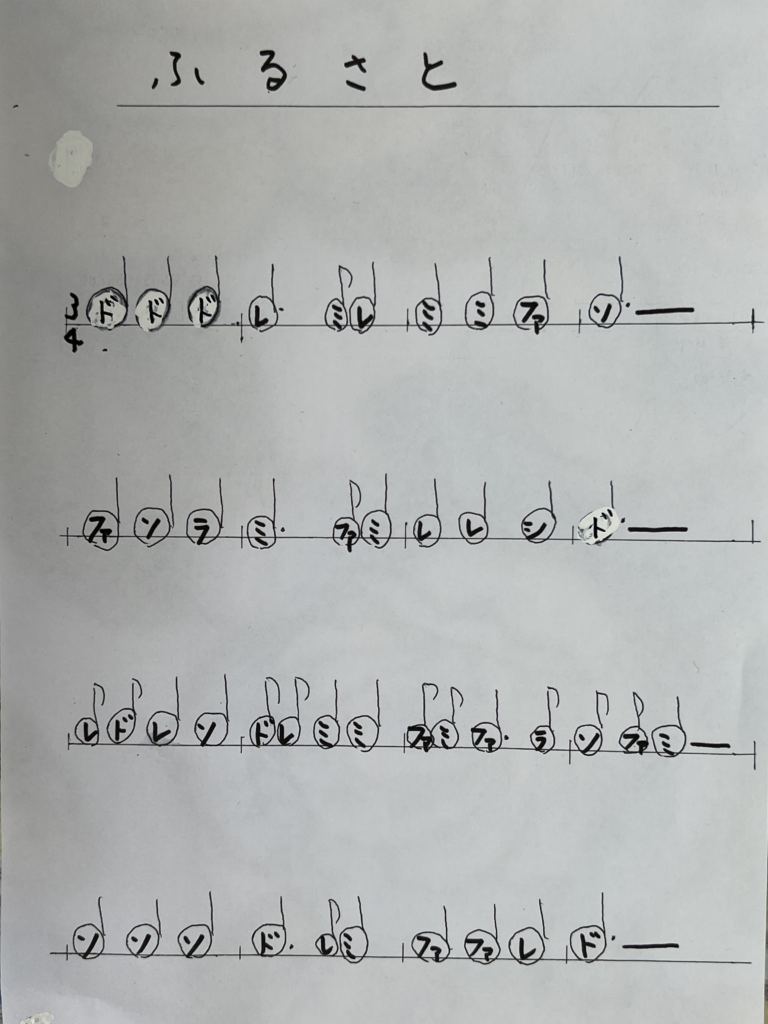 ふるさと
3/4 ド ド ド レ. ミ レ ミ ミ ファ ソ. ー
ファ ソ ラ ミ. ファ ミ レ レ シ ド. ー
レ ド レ ソ ド レ ミ ミ ファ ミ ファ. ラ ソ ファ ミ ー
ソ ソ ソ ド. レ ミ ファ ファ レ ド. ー